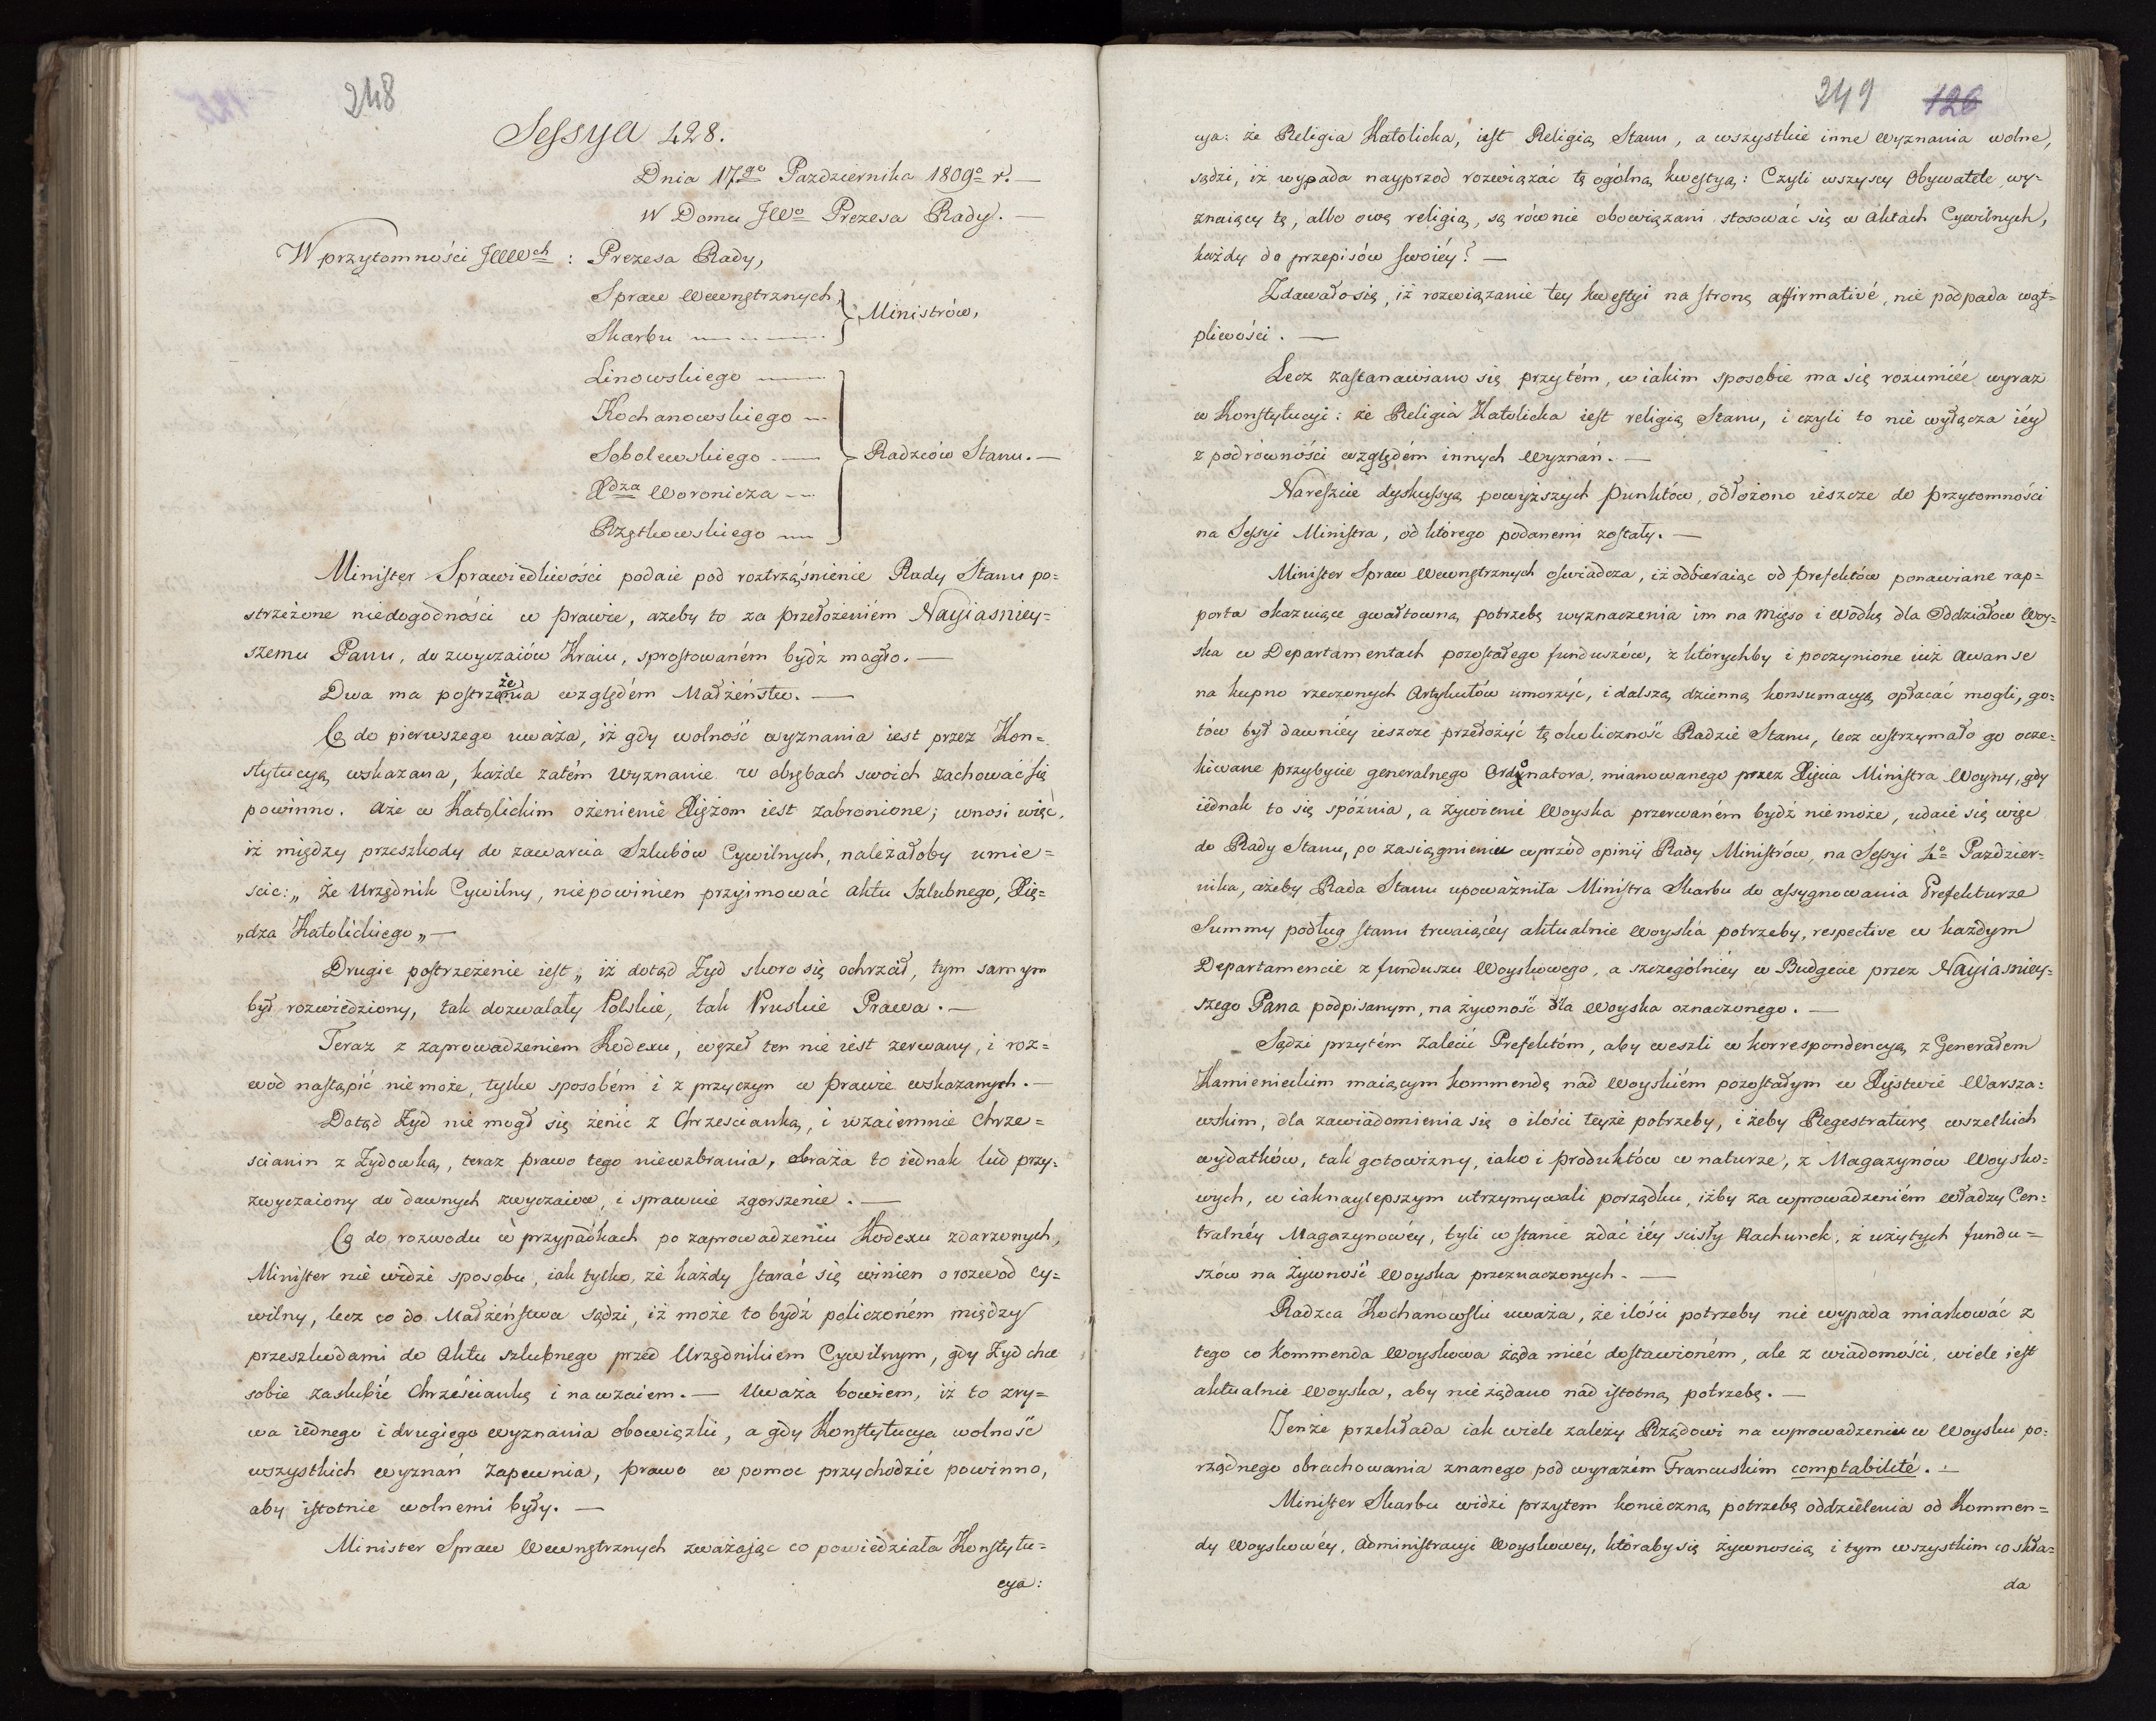 248
Sessya 428.
Dnia 17go Pazdziernika 1809o r. —
W Domu JWo Prezesa Rady. —
W przytomności JWWch : Prezesa Rady,
Spraw Wewnętrznych } Ministrów,
Skarbu
Linowskiego } Radzców Stanu. —
Kochanowskiego
Sobolewskiego
Xdza Woronicza
Rzętkowskiego
Minister Sprawiedliwości podaie pod roztrząśnienie Rady Stanu po=
strzeżone niedogodności w prawie, ażeby to za przełożeniem Nayiasniey=
szemu Panu, do zwyczaiów Kraiu, sprostowaném bydź mogło. —
Dwa ma postrzeżenia względém Małżeństw. —
Co do pierwszego uważa, iż gdy wolność wyznania iest przez Kon=
stytucyą wskazana, każde zatém wyznanie w obrębach swoich zachować się
powinno. Aże w Katolickim ożenienie Xiężom iest zabronione; wnosi więc,
iż między przeszkody do zawarcia Szlubów Cywilnych, należałoby umie=
scic: „ że Urzędnik Cywilny, niepowinien przyimować aktu Szlubnego, Xię=
„dza Katolickiego „ —
Drugie postrzeżenie iest „ iż dotąd Żyd skoro się ochrzcił, tym samym
był rozwiedziony, tak dozwalały Polskie, tak Pruskie Prawa. —
Teraz z zaprowadzeniem Kodexu, węzeł ten nie iest zerwany, i roz=
wod nastąpić nie może, tylko sposobém i z przyczyn w prawie wskazanych. —
Dotąd Żyd nie mogł się żenić z Chrzescianką, i wzaiemnie Chrze=
scianin z Żydowką, teraz prawo tego niewzbrania, obraża to iednak lud przy=
zwyczaiony do dawnych zwyczaiow, i sprawuie zgorszenie. —
Co do rozwodu w przypadkach po zaprowadzeniu Kodexu zdarzonych,
Minister nie widzi sposobu, iak tylko, że każdy starać się winien o rozwod cy=
wilny, lecz co do Małżeństwa sądzi, iż może to bydź policzoném między
przeszkodami do Aktu szlubnego przed Urzędnikiem Cywilnym, gdy Żyd chce
sobie zaslubić Chrześcianką i nawzaiem. — Uważa bowiem, iż to zry=
wa iednego i drugiego wyznania obowiązki, a gdy Konstytucya wolność
wszystkich wyznań zapewnia, prawo w pomoc przychodzić powinno,
aby istotnie wolnemi były. —
Minister Spraw Wewnętrznych zważając co powiedziała Konstytu=
cya:
249 126
cya: że Religia Katolicka, iest Religią Stanu, a wszystkie inne wyznania wolne,
sądzi, iż wypada nayprzod rozwiązać tę ogólną kwestyą: Czyli wszyscy Obywatele wy=
znaiący tę, albo ową religią, są równie obowiązani stosować się w aktach Cywilnych,
każdy do przepisów swoiéy? —
Zdawało się, iż rozwiązanie tey kwestyi na stronę affirmativé, nie podpada wąt=
pliwości. —
Lecz zastanawiano się przytém, w iakim sposobie ma się rozumiéć wyraz
w Konstytucyi: że Religia Katolicka iest religią Stanu, i czyli to nie wyłącza iéy
z pod równości względém innych wyznań. —
Nareszcie dyskussyą powyższych punktów, odłożono ieszcze do przytomności
na Sessyi Ministra, od którego podanemi zostały. —
Minister Spraw Wewnętrznych oswiadcza, iż odbieraiąc od prefektów ponawiane rap=
porta okazuiące gwałtowną potrzebę wyznaczenia im na mięso i wodkę dla Oddziałow Woy=
ska w Departamentach pozostałego funduszów, z którychby i poczynione iuż awanse
na kupno rzeczonych Artykułów umorzyć, i dalszą dzienną konsumacyą opłacać mogli, go=
tów był dawniéy ieszcze przedożyć tę okoliczność Radzie Stanu, lecz wstrzymało go ocze=
kiwane przybycie generalnego Ordonatora, mianowanego przez Xięcia Ministra Woyny, gdy
iednak to się spóźnia, a żywienie Woyska przerwaném bydź niemoże, udaie się więc
do Rady Stanu, po zasiągnieniu wprzód opinii Rady Ministrów, na Sessyi 4o Pazdzier=
nika, ażeby Rada Stanu upoważniła Ministra Skarbu do assygnowania Prefekturze
Summy podług stanu trwaiącéy aktualnie Woyska potrzeby, respective w każdym
Departamencie z funduszu Woyskowego, a szczególniéy w Budgecie przez Nayiasniey=
szego Pana podpisanym, na żywność dla Woyska oznaczonego. —
Sądzi przytém zalecić Prefektóm, aby weszli w korrespondencyą z Generałem
Kamienieckim maiącym kommendę nad Woyskiém pozostałym w Xięstwie Warsza=
wskim, dla zawiadomienia się o ilości teyże potrzeby, i żeby Regestraturę wszelkich
wydatków, tak gotowizny, iako i produktów w naturze, z Magazynów Woysko=
wych, w iaknaylepszym utrzymywali porządku, iżby za wprowadzeniém władzy Cen=
tralnéy Magazynowéy, byli w stanie zdać iéy scisły Rachunek, z użytych fundu=
szów na żywność Woyska przeznaczonych. —
Radzca Kochanowski uważa, że ilości potrzeby nie wypada miarkować z
tego co kommenda Woyskowa żąda mieć dostawioném, ale z wiadomości, wiele iest
aktualnie Woyska, aby nie żądano nad istotną potrzebę. —
Tenże przekłada iak wiele zależy Rządowi na wprowadzeniu w Woysku po=
rządnego obrachowania znanego pod wyrazém Francuskim comptabilité. —
Minister Skarbu widzi przytem konieczną potrzebę oddzielenia od Kommen=
dy Woyskowéy, Administracyi Woyskowey, któraby się żywnoscią i tym wszystkim co skła=
da